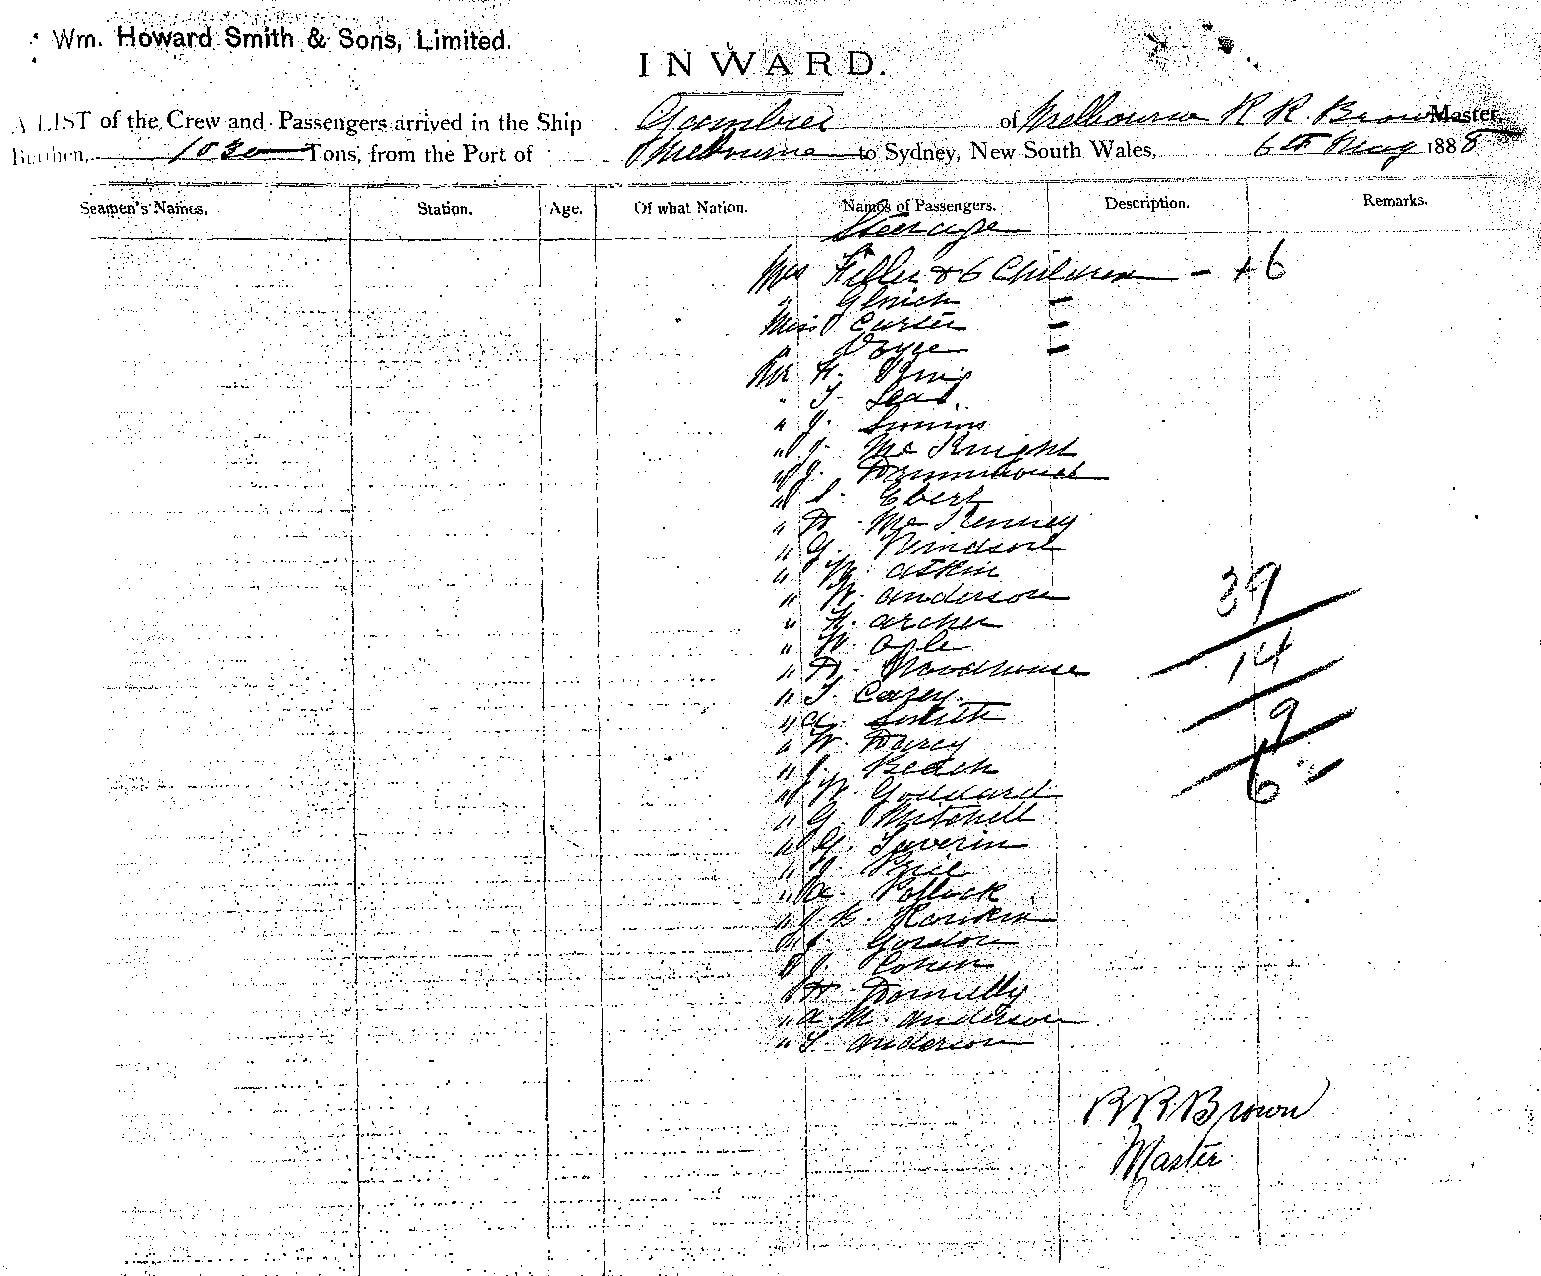 Wm. Howard Smith & Sons, Limited.
INWARD.
A LIST of the Crew and Passengers arrived in the Ship Gambier of Melbourne R R. Brown Master,
Burthen, 1030 Tons, from the Port of Melbourne to Sydney, New South Wales, 6th 1888
Seamen's Names. Station. Age. Of what Nation. Names of Passengers. Description. Remarks.
Steerage
Mrs & 6 Children - + 6
" -
Miss Carter -
" -
Mr H. King
" T.
" J. Simms
" J. McKnight
" J.
" S. Ebert
" D.
" G. Windsor
" W. Askin
" W. Anderson
" H. Archer
" W.
" D. Woodhouse
" T. Carey
" A. Smith
" W. Darcy
" J. Beach
" W. Goddard
" G. Mitchell
" G. Severin
" J. Price
" A. Pollock
" J K. Rankin
" J. Gordon
" J. Cohen
" D. Donnelly
" A. M. Anderson
" T Anderson
39
14
9
6
R R. Brown
Master